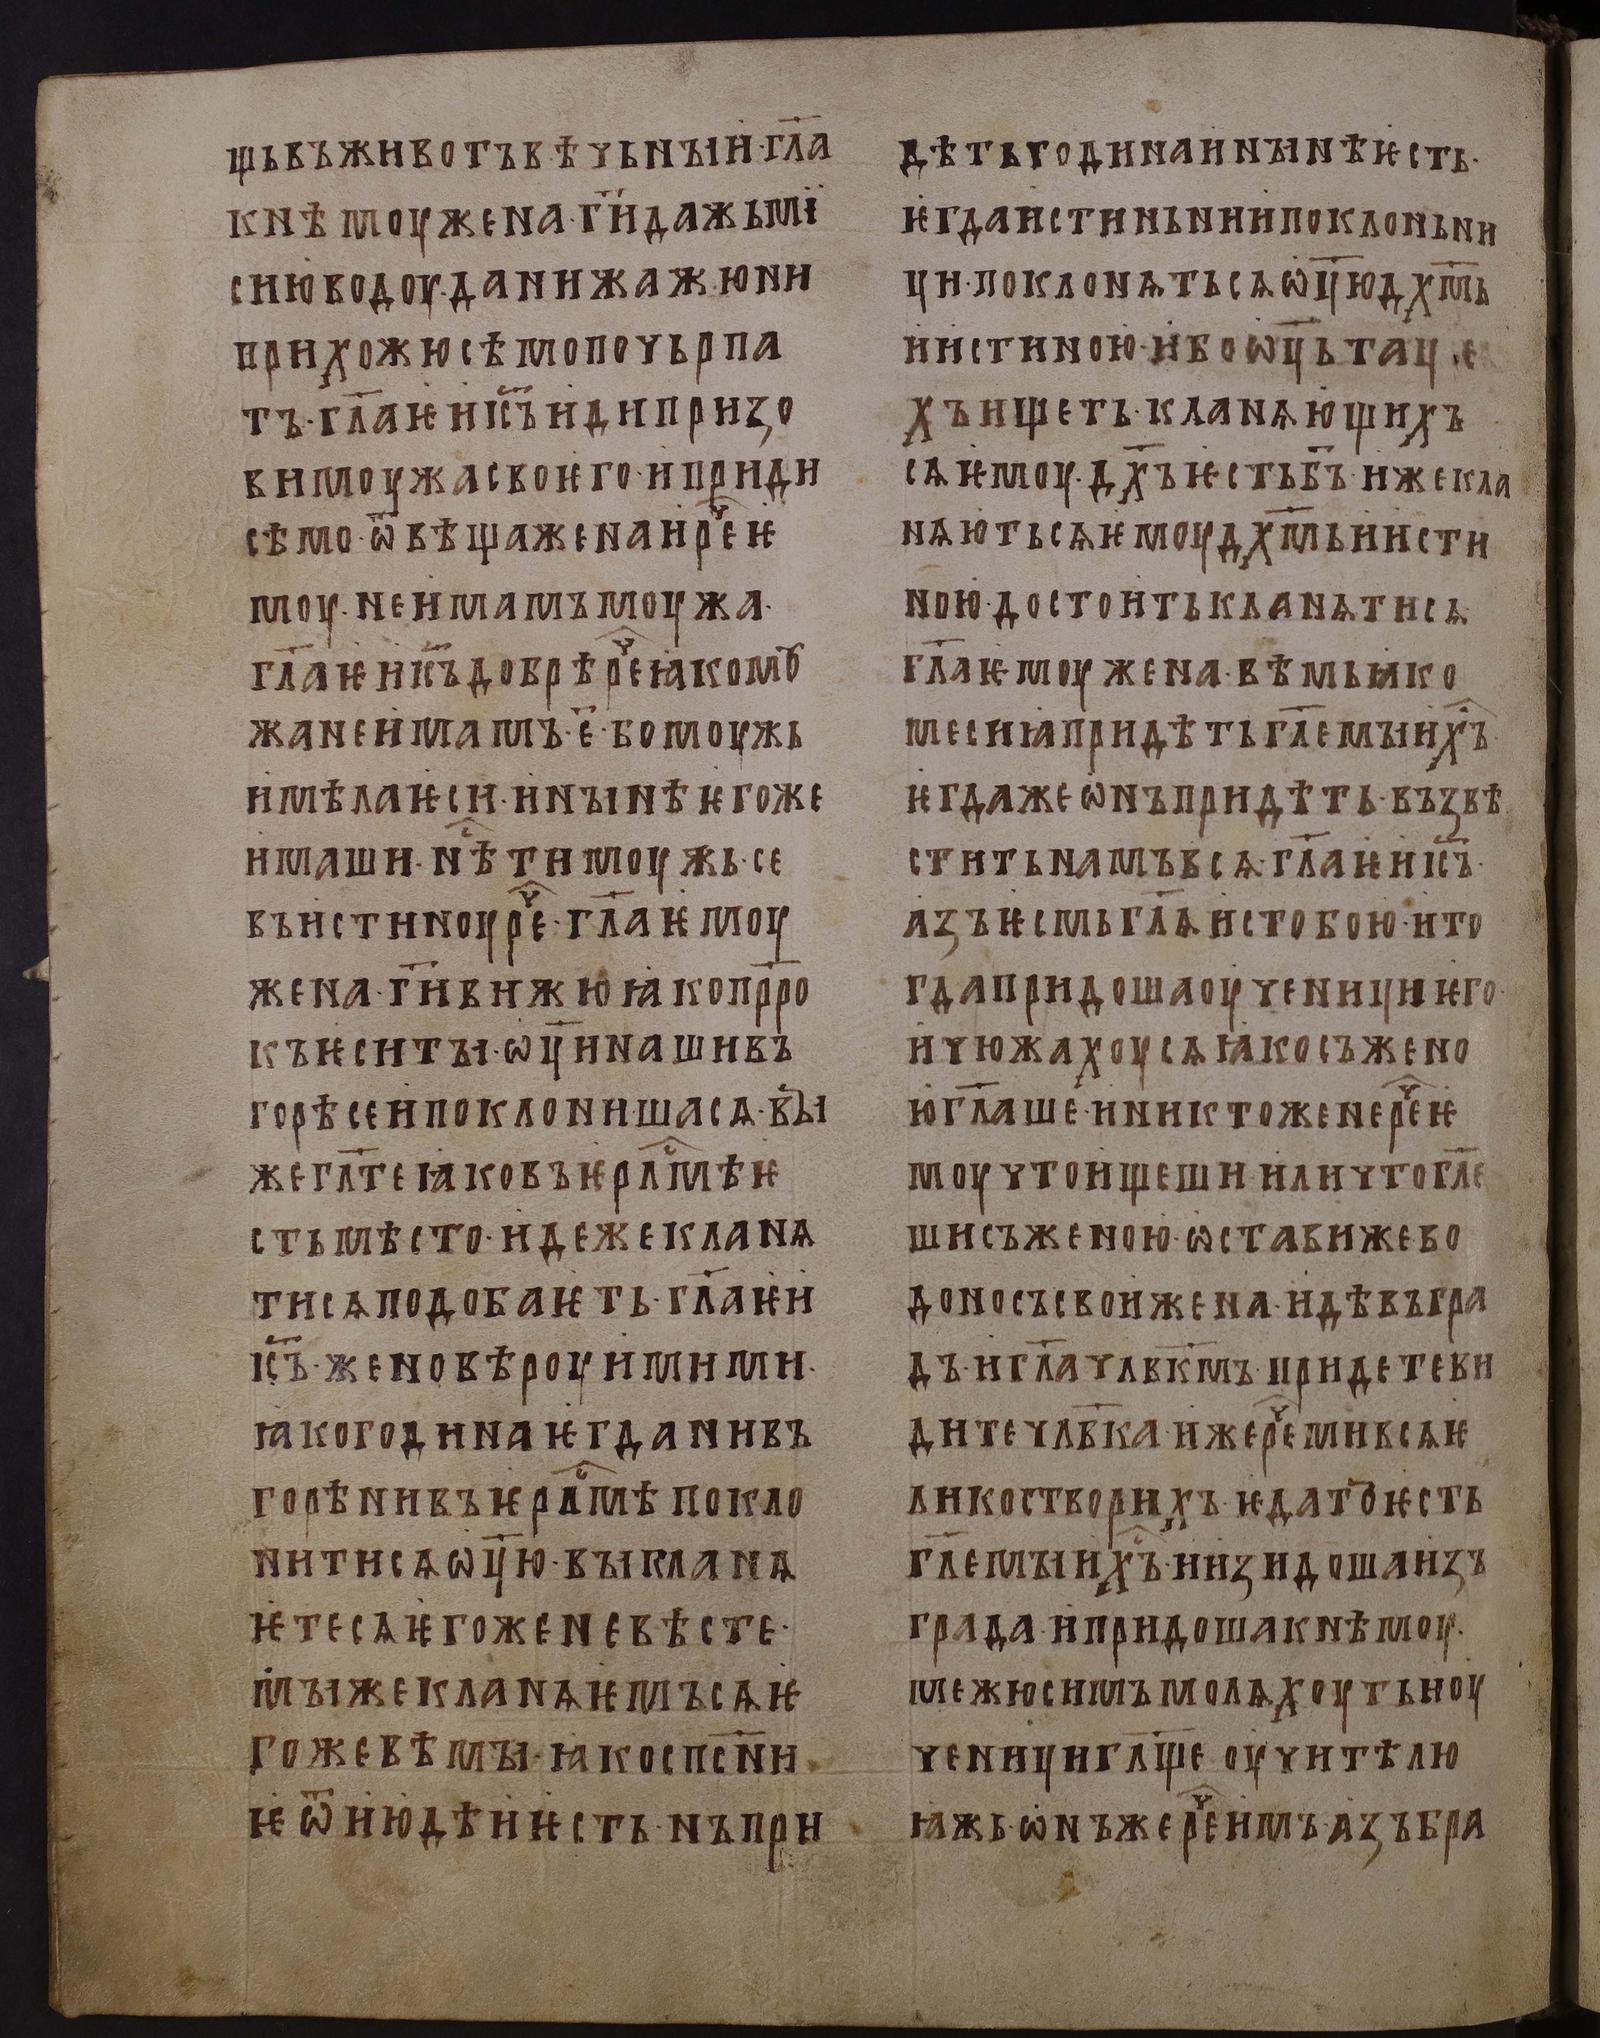 щьвъживотъвѣчьнъıи·гл҃а
кнѣмоужена·ги҃дажьмї
сиюводоу·даниждажюни
прихожюсѣмопочьрпа
тъ·гл҃аѥиıс҃ъидипризо
вимоужасвоѥго·ипрıди
сѣмо·ѿвѣщаженаирⷱ҇еѥ
моу·неимамъмоужа·
гл҃аѥиıс҃ъдобрѣрⷱ҇еꙗкомꙋ
жанеимамъ·е҃·бомоужь
имѣлаѥси·инъıнѣѥгоже
имаши·нⷭ҇ѣтимоужь·се
въистинноурⷱ҇е·гл҃аѥмоу
жена·ги҃вижюꙗкопрⷪ҇ро
къѥситъı·ѡц҃инашивъ
горѣсеипоклонишасѧ·въı
жегл҃теꙗковъѥрⷭ҇лмѣѥ
стьмѣсто·идежекланѧ
тисѧподобаѥть·гл҃аѥи
ıс҃ъ·женовѣроуимими·
ꙗкогодинаѥгданивъ
горѣнивъѥрⷭ҇лмѣпокло
нитисѧѡц҃ю·въıкланѧ
ѥтесѧѥгоженевѣсте·
мъıжекланѧѥмъсѧѥ
гожевѣмъı·ꙗкоспс҃ни
ѥѿиюдѣиѥсть·нъпри
дѣтьгодинаинъıнѣѥсть·
ѥгдаистиньниипоклоньни
ци·поклонѧтьсѧѡц҃юдх҃мь
иистиною·ибоѡц҃ьтац е
хъищеть·кланѧющихъ
сѧѥмоу·дх҃ъѥстьб҃ъ·ижекла
нѧютьсѧѥмоудх҃мьиисти
ною·достоитькланѧтисѧ
гл҃аѥмоужена·вѣмьꙗко
месиꙗпридѣтьгл҃емъıихⷭ҇ъ
ѥгдажеѡнъпридѣть·възвѣ
ститьнамъвсѧ·гл҃аѥиıс҃ъ·
азъѥсмьгл҃ѧистобою·ито
гдапридошаоученициѥго·
ичюжахоусѧꙗкосъжено
югл҃аше·иниктоженерⷱ҇еѥ
моучтоищешиıличтогл҃е
шисъженою·ѡставижево
доносъсвоижена·идѣвъгра
дъ·игл҃ачлвк҃мъ·придетеви
дитечлв҃каижерⷱ҇емивсѧѥ
ликостворихъ·ѥдатꙋѥсть
гл҃емъıихⷭ҇ъ·иизидошаизъ
града·ипридошакнѣмоу·
межюсимъмолѧхоутьиоу
ченицигл҃ще оучителю
ꙗжь·ѡнъжерⷱ҇еимъ·азъбра